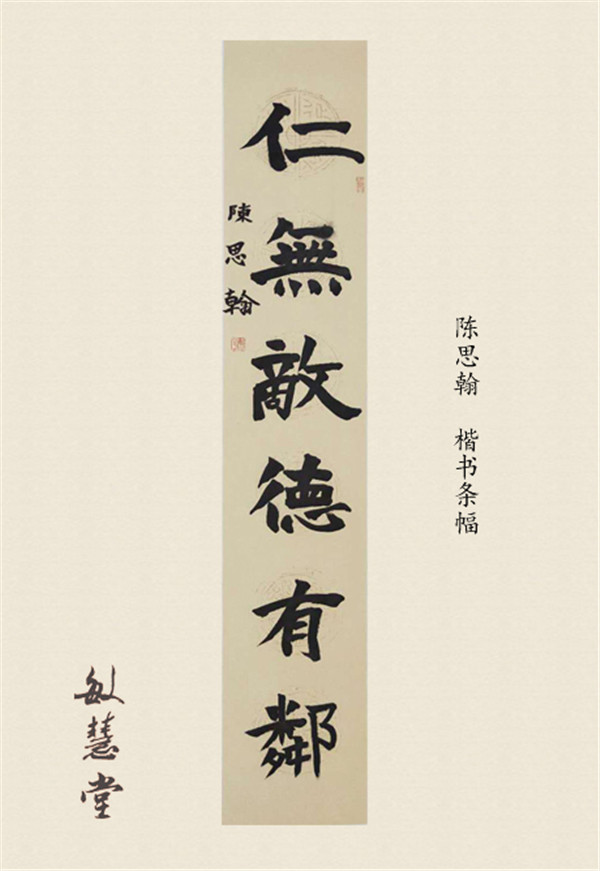 仁無敵德有鄰
陳思翰
陈思翰 楷书条幅
敏慧堂